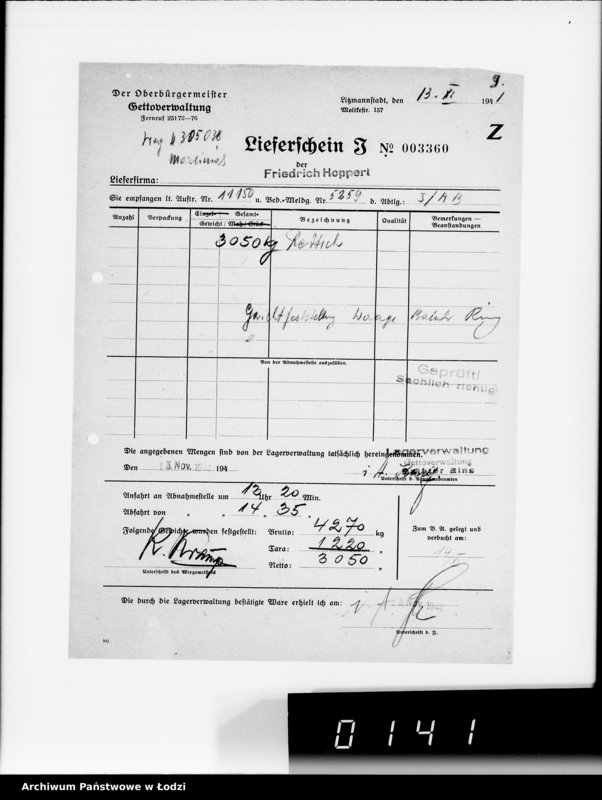 Der Oberbürgermeister
Gettoverwaltung
Fernruf 25172—76
Litzmannstadt, den 13. XI. 1941
Moltkestr. 157
Z
Lieferschein J № 003360
der
Friedrich Hoppert
Lieferfirma:
Sie empfangen lt. Auftr. Nr. 11150 u. Bed.-Meldg. Nr. 5259 d. Abtlg.:
Anzahl
Verpackung
Einzel- Gesamt-
Gewicht/Maß/Stück
Bezeichnung
Qualität
Bemerkungen —
Beanstandungen
3050 kg Rettich
Gewichtfeststellung Waage Ring
Von der Abnahmestelle auszufüllen.
Geprüft!
Sachlich richtig!
Die angegebenen Mengen sind von der Lagerverwaltung tatsächlich hereingenommen.
Lagerverwaltung
Gettoverwaltung
Den 13. Nov. 1941 194
i. A.
Unterschrift d. Abnahmebeamten
Anfahrt an Abnahmestelle um 13 Uhr 20 Min.
Abfahrt von " " 14 " 35 "
Folgende Gewichte wurden festgestellt:
Brutto: 4270 kg
Tara: 1220 "
Netto: 3050 "
Unterschrift des Wiegemeisters
Zum B. A. gelegt und
verbucht am:
Die durch die Lagerverwaltung bestätigte Ware erhielt ich am:
i. A.
Unterschrift d. J.
0141
Archiwum Państwowe w Łodzi